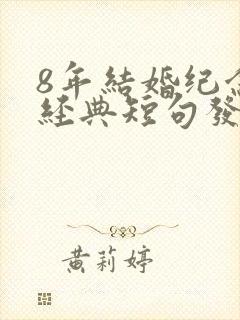 8年結婚纪念
經典短句發
黄莉婷